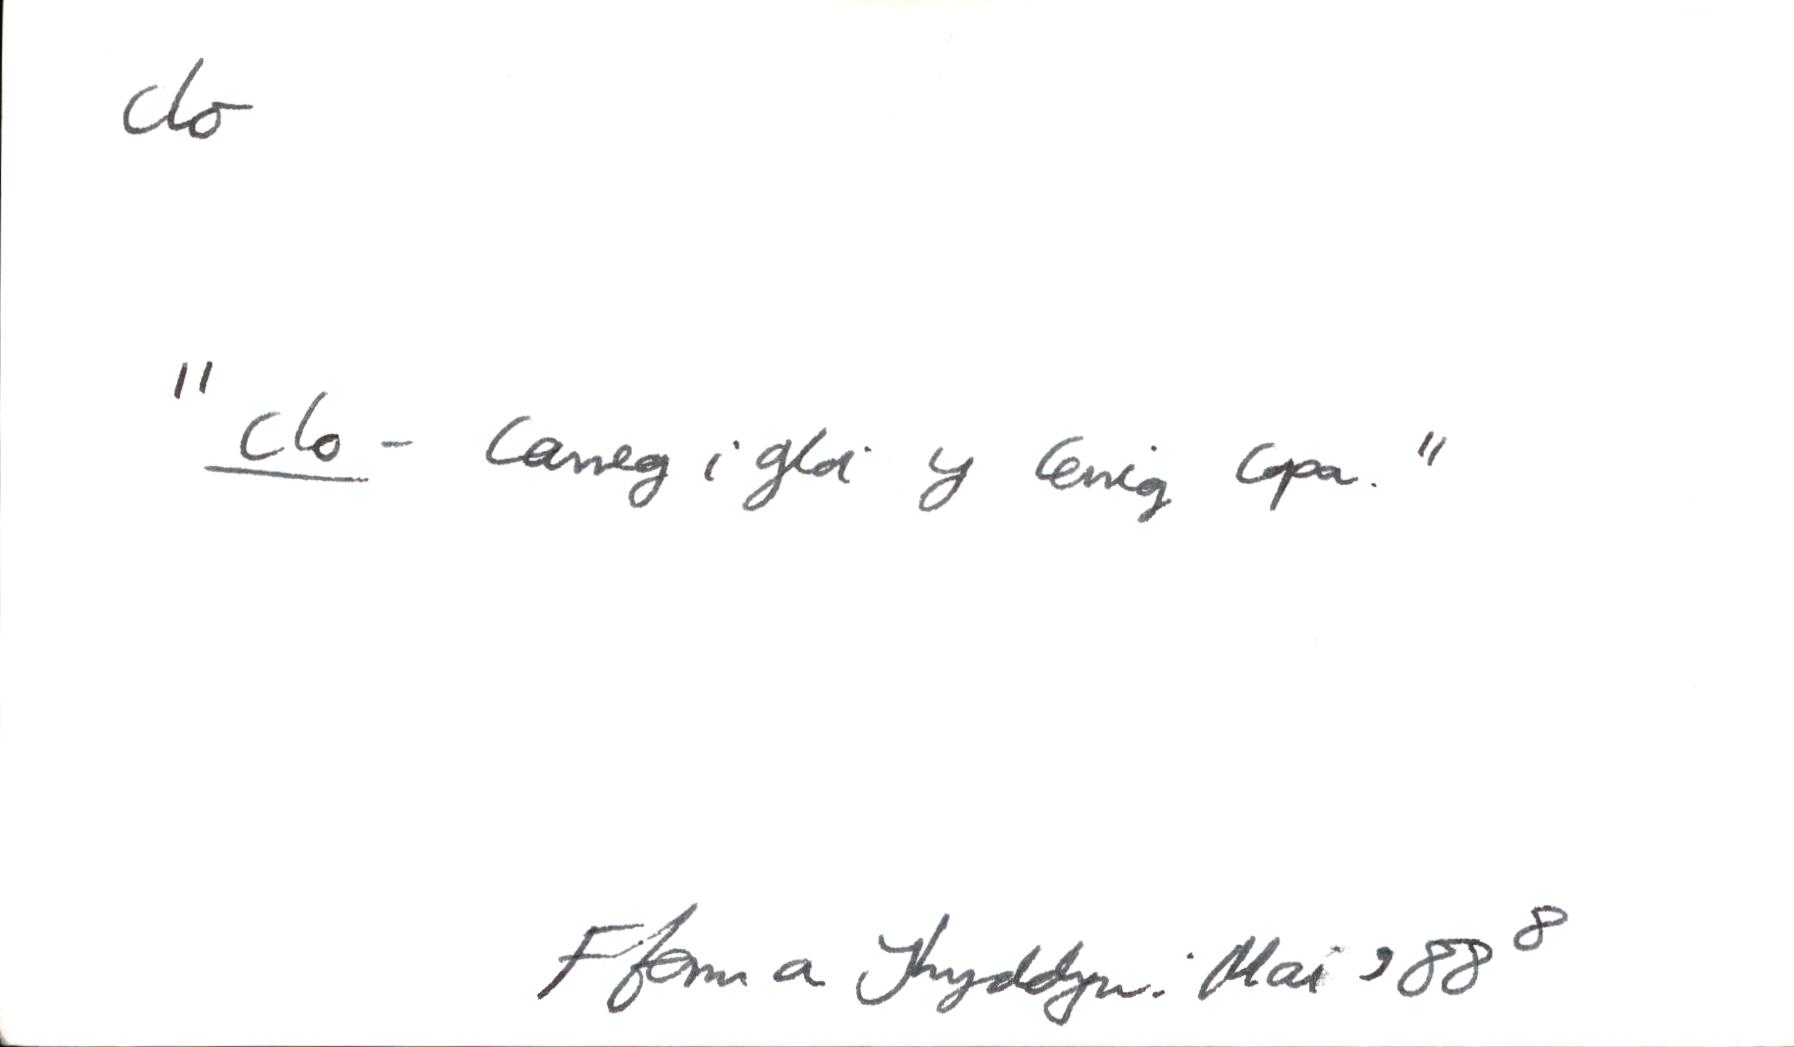 clo
"clo - Carreg i gloi y Cerrig Copa."
Fferm a Thyddyn: Mai, 88 8